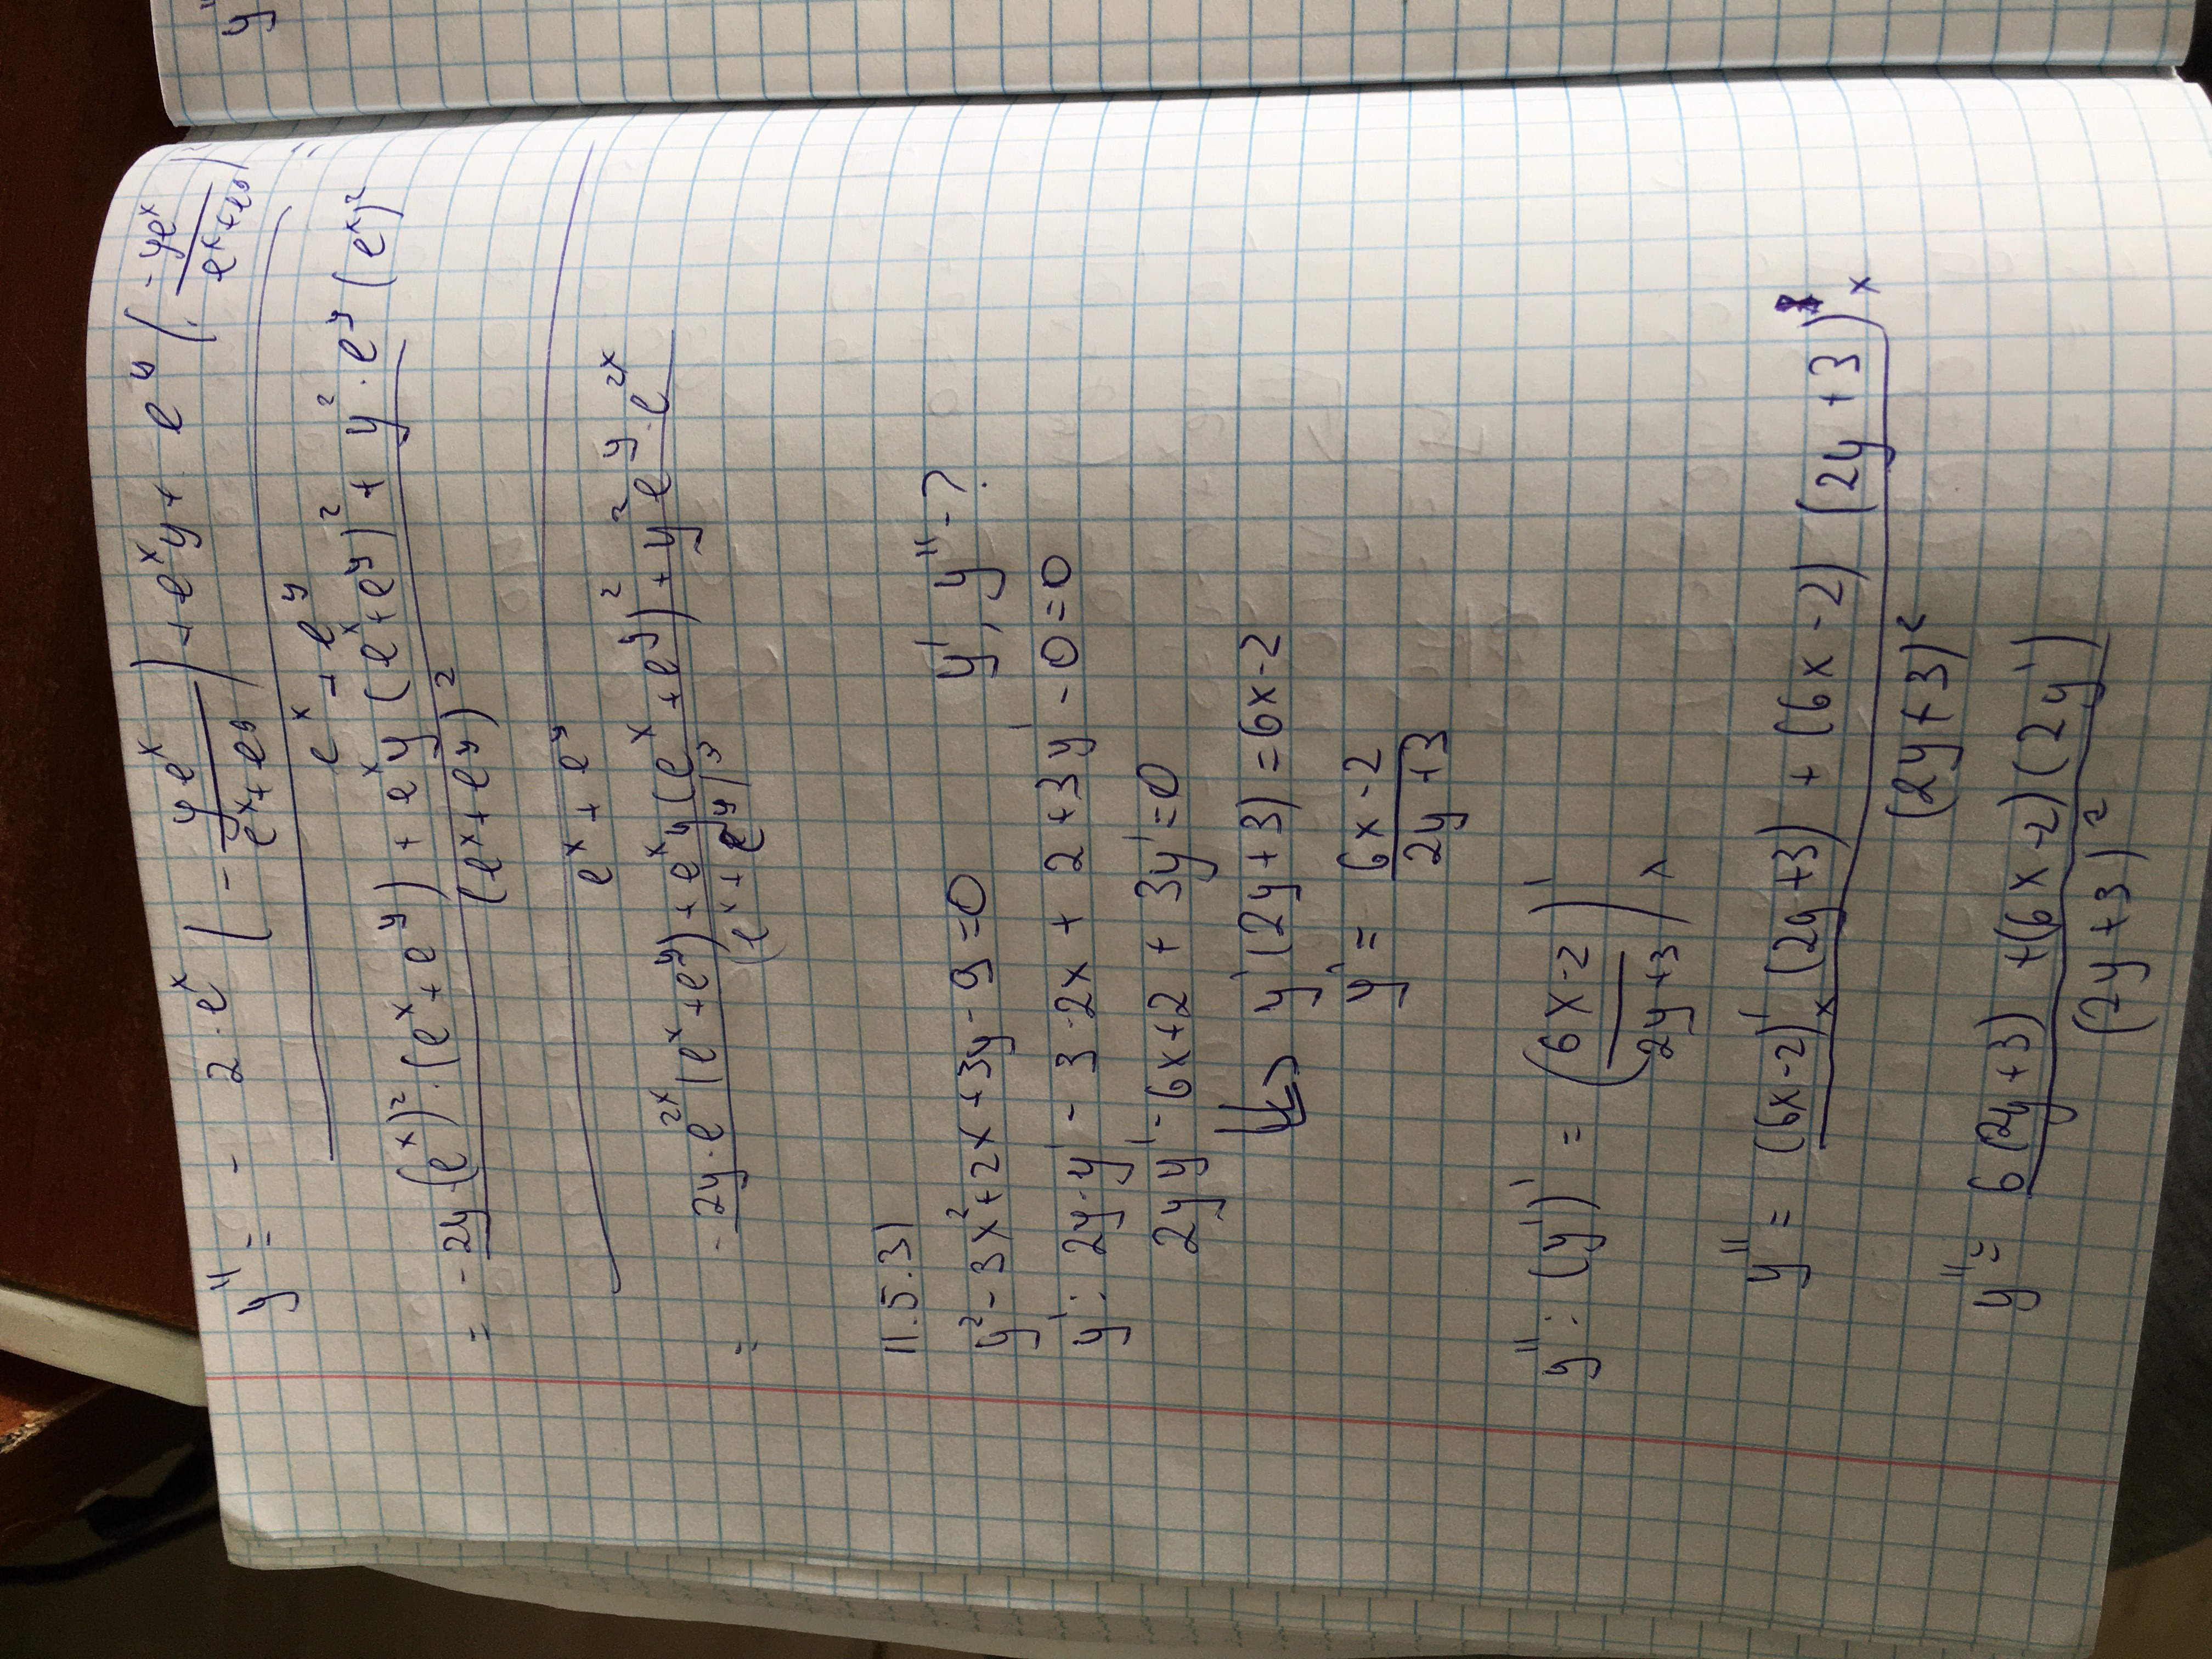 y'' = - 2·e^x (- ye^x/(e^x+e^y)) + e^x y + e^y (-ye^x/(e^x+e^y))^2 / (e^x + e^y) =
= -2y·(e^x)^2·(e^x+e^y) + e^x y (e^x+e^y)^2 + y^2·e^y (e^x)^2 / (e^x+e^y)^2 / (e^x + e^y)
= -2y·e^{2x}(e^x+e^y) + e^x y (e^x+e^y)^2 + y^2 e^y·e^{2x} / (e^x+e^y)^3
11.5.31
y^2 - 3x^2 + 2x + 3y - 9 = 0 y', y'' - ?
y': 2y·y' - 3·2x + 2 + 3y' - 0 = 0
2yy' - 6x + 2 + 3y' = 0
⇒ y'(2y+3) = 6x-2
y' = (6x-2)/(2y+3)
y'': (y')' = ((6x-2)/(2y+3))'_x
y'' = (6x-2)'_x (2y+3) + (6x-2) (2y+3)'_x / (2y+3)^2
y'' = 6(2y+3) + (6x-2)(2y') / (2y+3)^2
y''